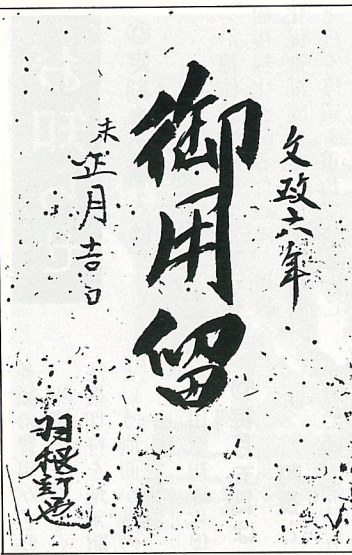 文政六年
御用留
未正月吉日
羽根